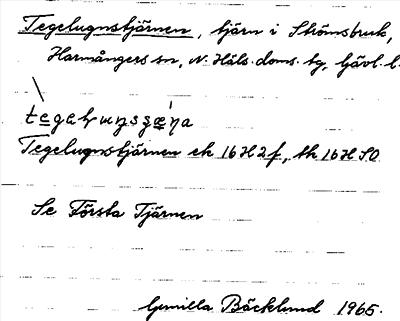 Tegelugnstjärnen, tjärn i Strömsbruk,
Harmångers sn, N. Häls. doms. tg, Gävl. l.
Tegelugnstjärnen ek 16H2f, tk 16H SO
Se Första Tjärnen
Gunilla Bäcklund 1965.